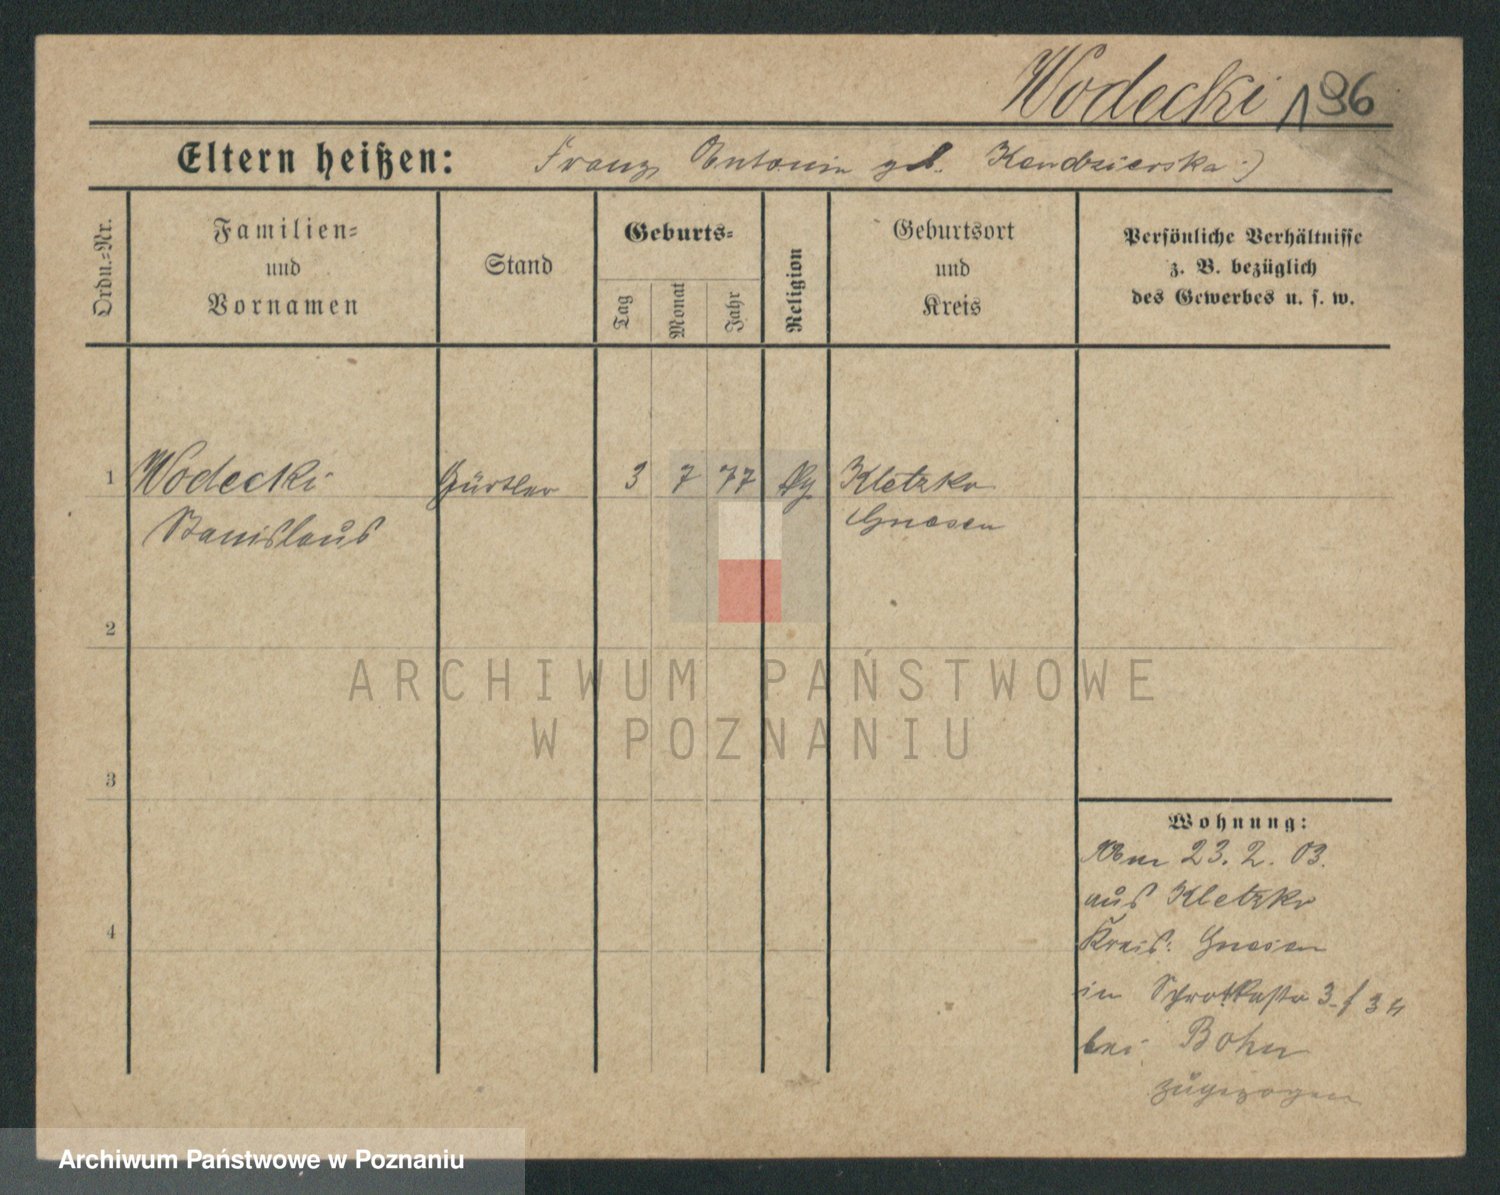 Wodecki 196
Eltern heißen: Franz, Antonin geb. Kendzierska :)
Ordn.-Nr.
Familien-
und
Vornamen
Stand
Geburts-
Tag
Monat
Jahr
Religion
Geburtsort
und
Kreis
Persönliche Verhältnisse
z. B. bezüglich
des Gewerbes u. s. w.
1 Wodecki Gürtler 3 7 77 Kletzko
Stanislaus Gnesen
2
3
4
Wohnung:
23. 2. 03.
aus Kletzko
Kreis: Gnesen
in 3
bei Bohn
zugezogen
ARCHIWUM PAŃSTWOWE
W POZNANIU
Archiwum Państwowe w Poznaniu